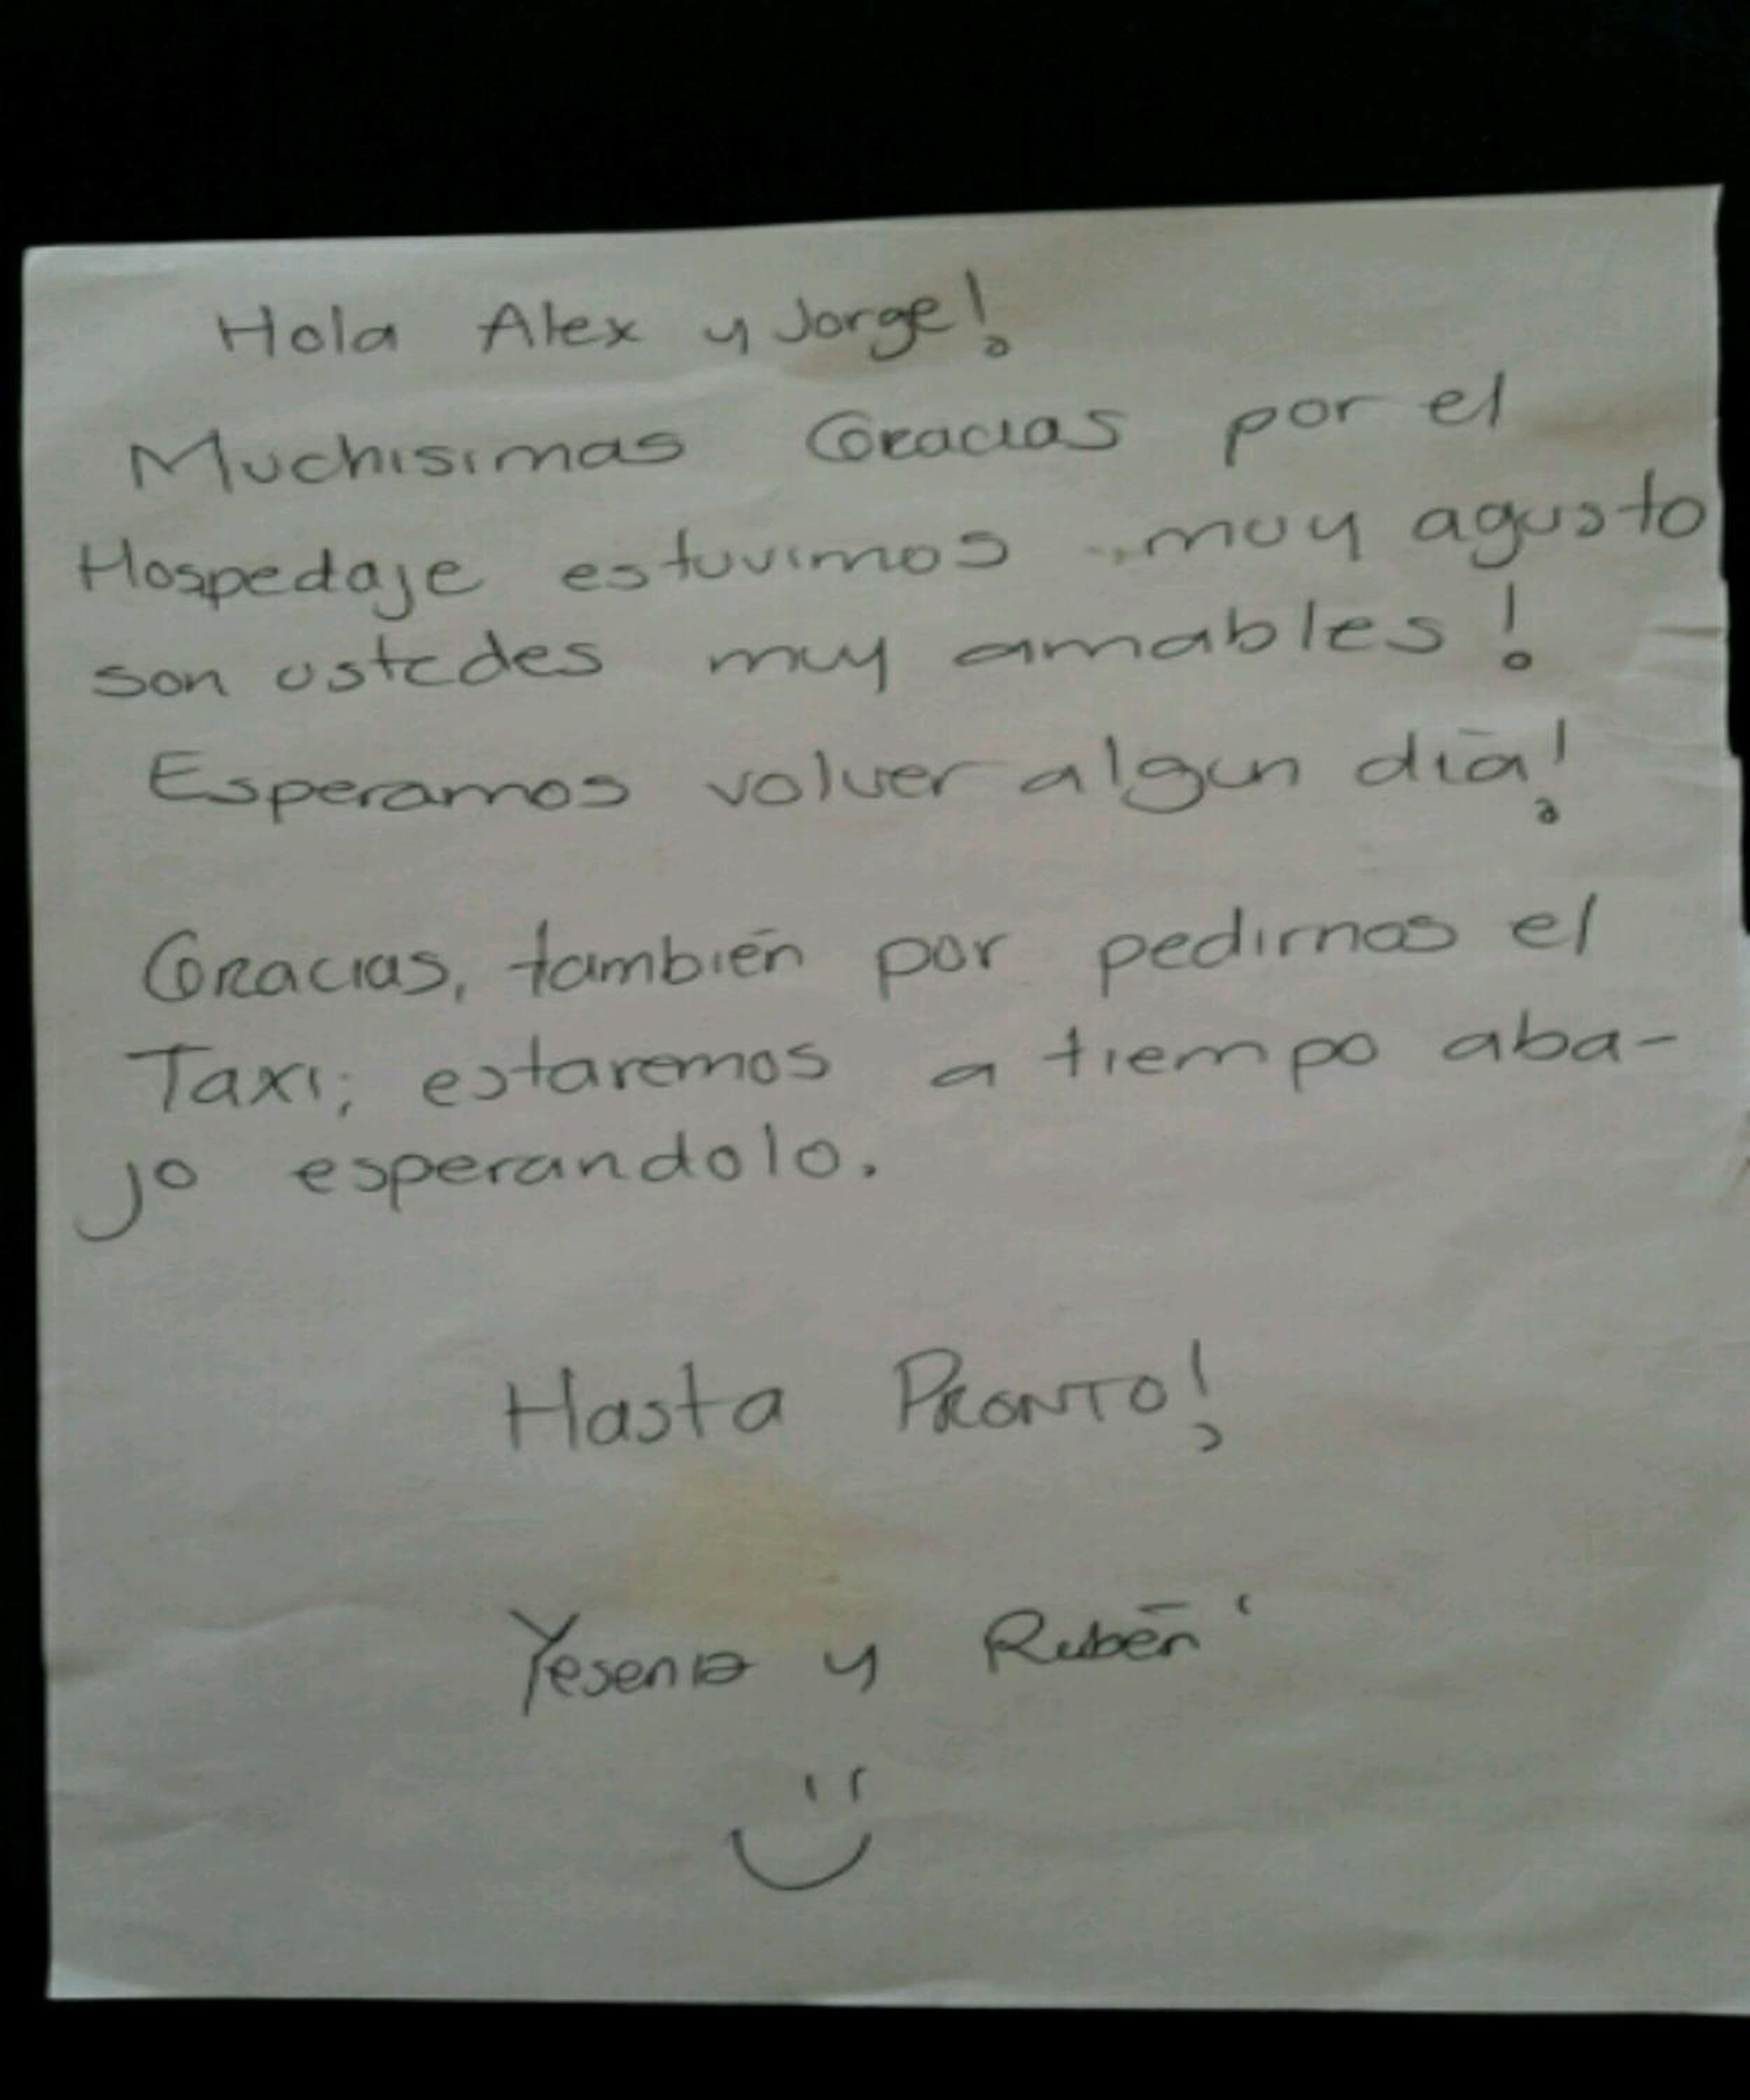 Hola Alex y Jorge!
Muchisimas Gracias por el
Hospedaje estuvimos muy agusto
son ustedes muy amables!
Esperamos volver algun día!
Gracias, también por pedirnos el
Taxi; estaremos a tiempo aba-
jo esperandolo.
Hasta PRONTO!
Yesenia y Rubén